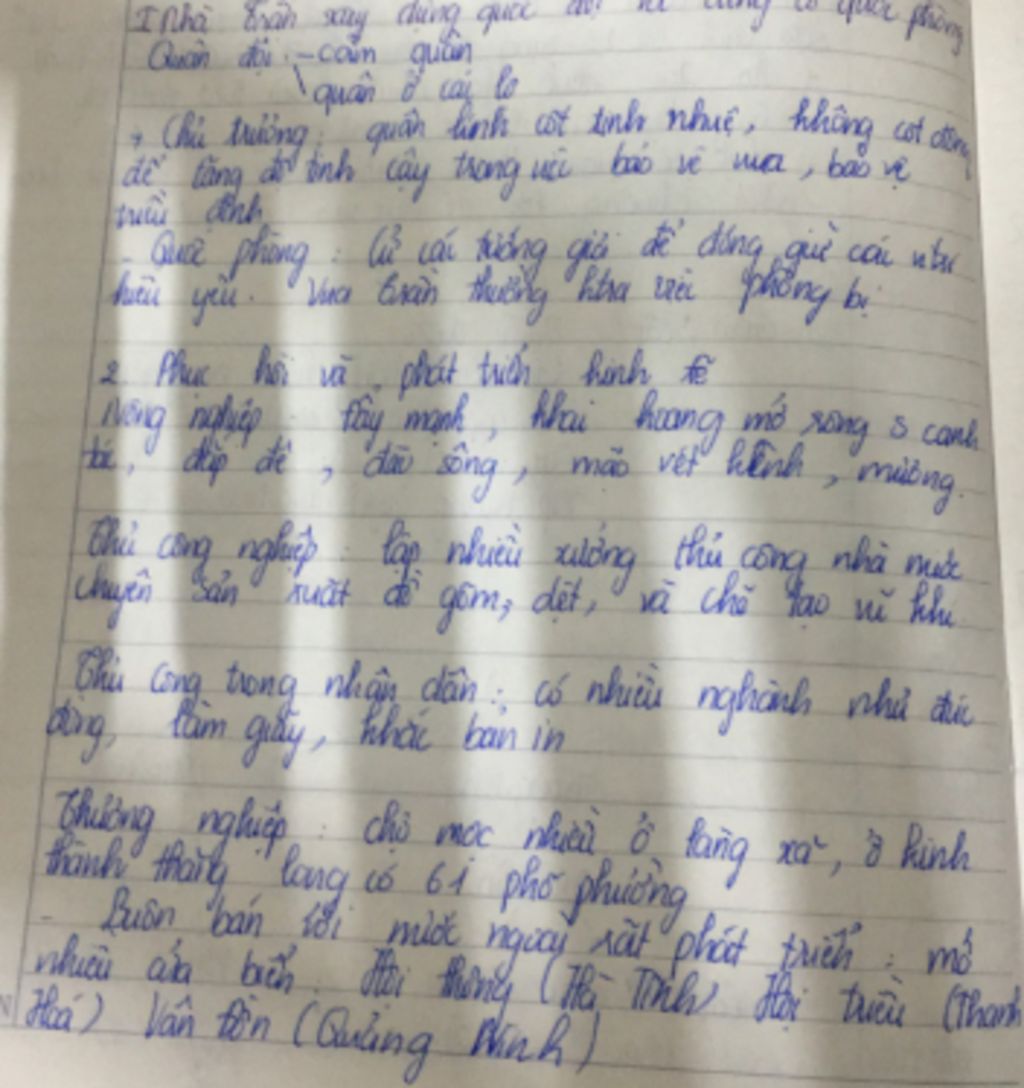 1 Nhà Trần xây dựng quân đội và củng cố quốc phòng
Quân đội - cấm quân
quân ở các lộ
+ Chủ trương: quân lính cốt tinh nhuệ, không cốt đông
để tăng độ tinh cậy trong việc bảo vệ vua, bảo vệ
triều đình
- Quốc phòng: Cử các tướng giỏi để đóng giữ các nơi
hiểm yếu. Vua Trần thường ktra việc phòng bị
2. Phục hồi và phát triển kinh tế
Nông nghiệp: đẩy mạnh, khai hoang mở rộng s canh
tác, đắp đê, đào sông, mão vét kênh, mương.
Thủ công nghiệp: lập nhiều xưởng thủ công nhà nước
chuyên sản xuất đồ gốm, dệt, và chế tạo vũ khí
Thủ công trong nhân dân: có nhiều nghành như đúc
đồng, làm giấy, khắc bản in
Thương nghiệp: chợ mọc nhiều ở làng xã, ở kinh
thành thăng long có 61 phố phường
- Buôn bán với nước ngoài rất phát triển: mở
nhiều cửa biển. Hội thống (Hà Tĩnh) Hội triều (Thanh
Hoá) Vân đồn (Quảng Ninh)